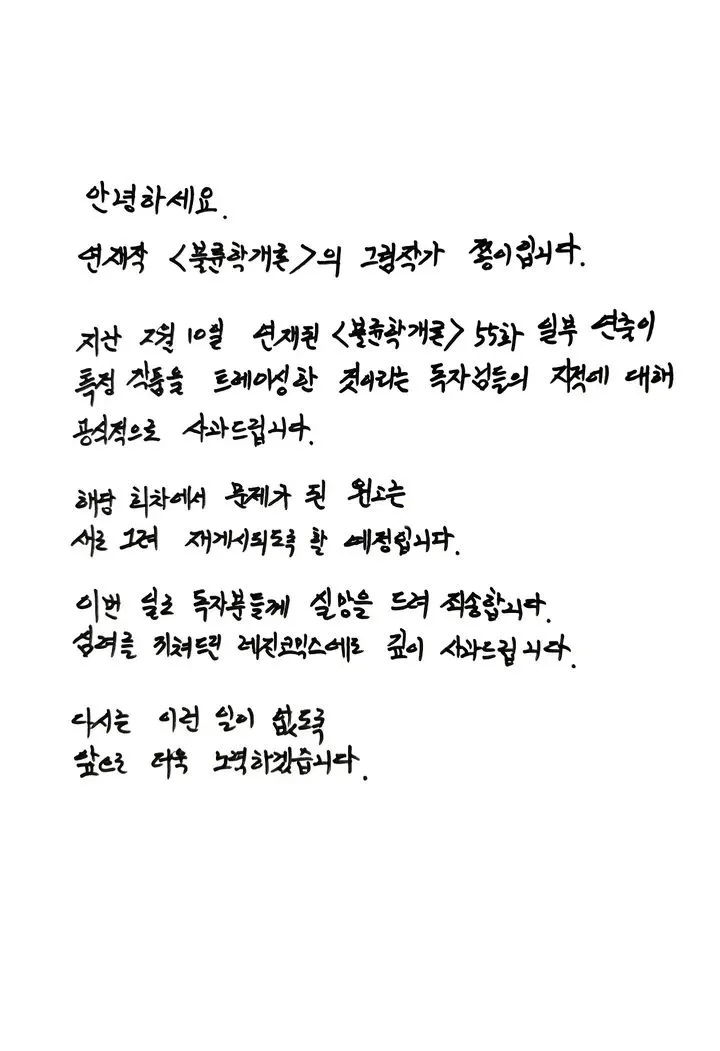 안녕하세요.
연재작 <불륜학개론>의 그림작가 쫑이입니다.
지난 2월 10일 연재된 <불륜학개론> 55화 일부 연출이
특정 작품을 트레이싱한 것이라는 독자님들의 지적에 대해
공식적으로 사과드립니다.
해당 회차에서 문제가 된 원고는
새로 그려 재게시되도록 할 예정입니다.
이번 일로 독자분들께 실망을 드려 죄송합니다.
심려를 끼쳐드린 레진코믹스에도 깊이 사과드립니다.
다시는 이런 일이 없도록
앞으로 더욱 노력하겠습니다.